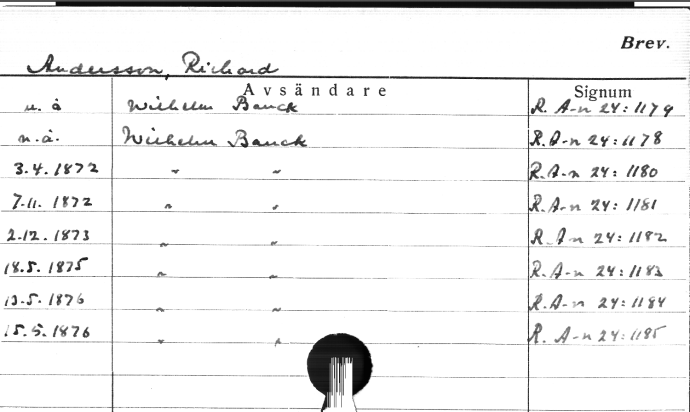 Brev.
Andersson, Richard
Avsändare Signum
u. å Wilhelm Bauck R. A-n 24:1179
n.å. Wilhelm Bauck R.A-n 24:1178
3.4.1872 " " R.A-n 24:1180
7.11.1872 " " R.A-n 24:1181
2.12.1873 " " R.A-n 24:1182
18.5.1875 " " R.A-n 24:1183
13.5.1876 " " R.A-n 24:1184
15.5.1876 " " R.A-n 24:1185